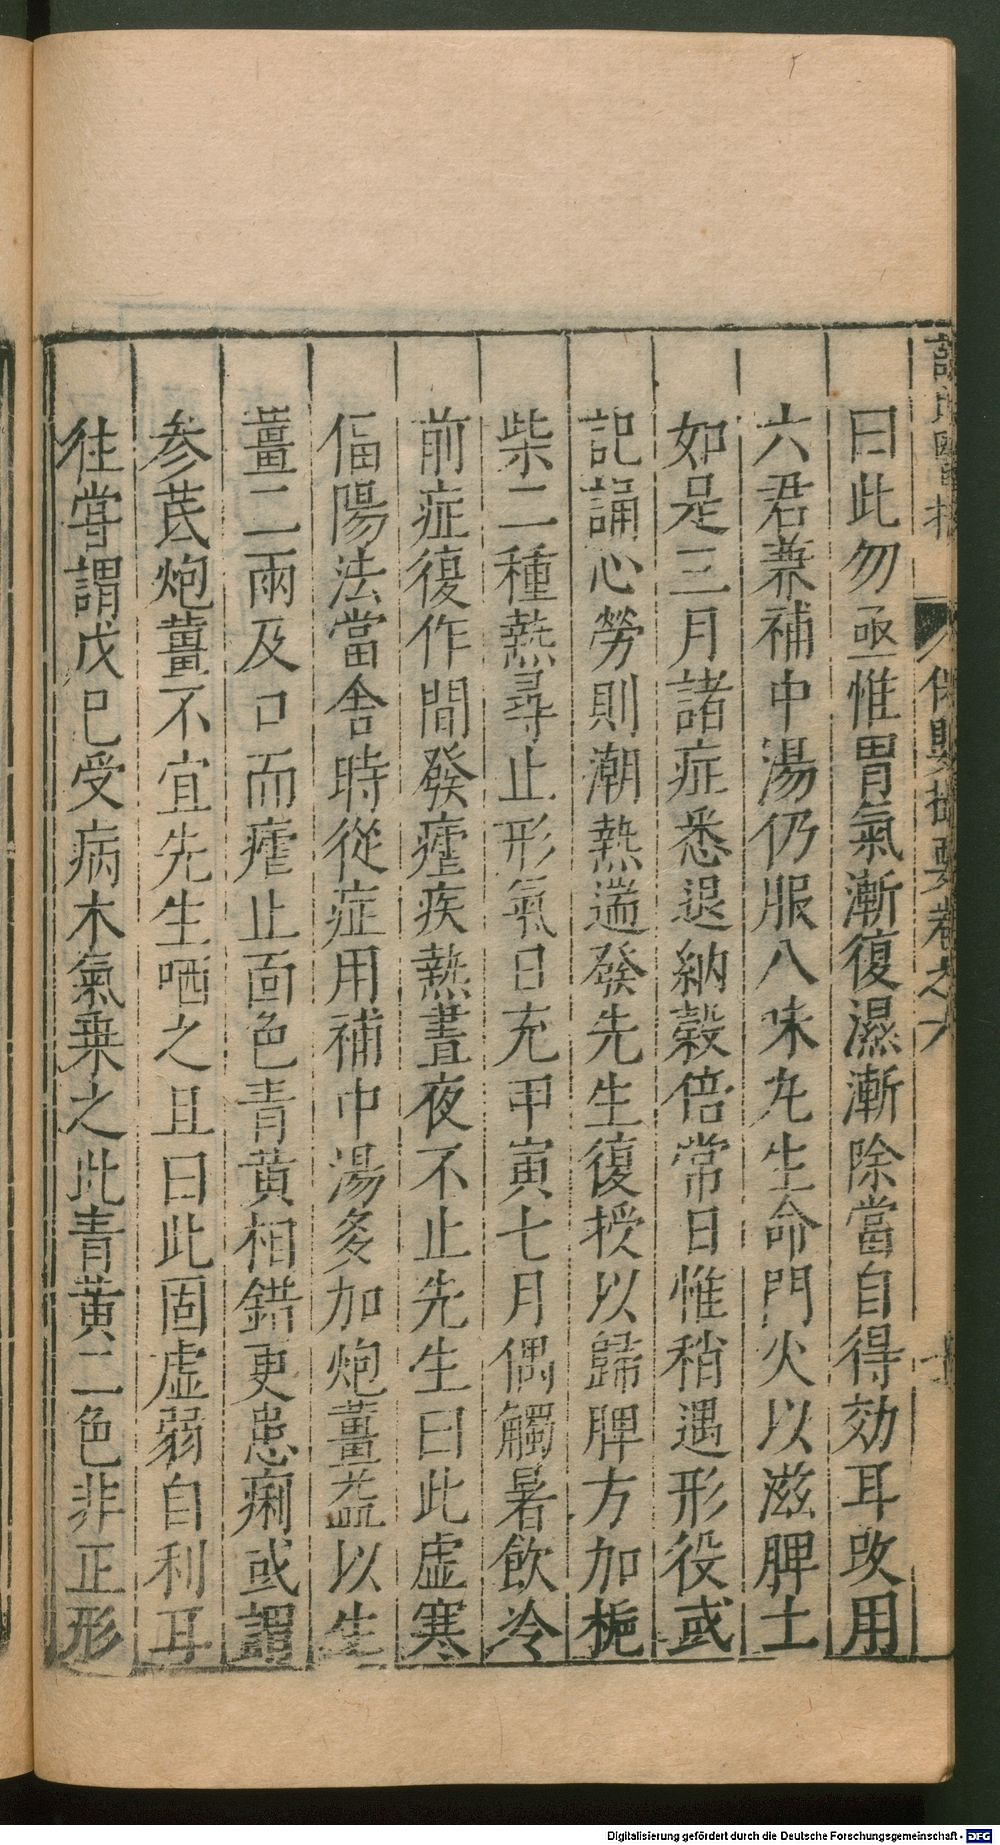 薛氏醫按 保嬰撮要卷之六
曰此勿亟惟胃氣漸復濕漸除當自得効耳改用
六君兼補中湯仍服八味丸生命門火以滋脾土
如是三月諸症悉退納穀倍常日惟稍遇形役或
記誦心勞則潮熱遄發先生復授以歸脾方加梔
柴二種熱尋止形氣日充甲寅七月偶觸暑飲冷
前症復作間發瘧疾熱晝夜不止先生曰此虛寒
偪陽法當舍時從症用補中湯多加炮薑益以生
薑二兩及口而瘧止面色青黃相錯更患痢或謂
參芪炮薑不宜先生哂之且曰此固虛弱自利耳
往嘗謂戊已受病木氣乗之此青黃二色非正形
Digitalisierung gefördert durch die Deutsche Forschungsgemeinschaft - DFG